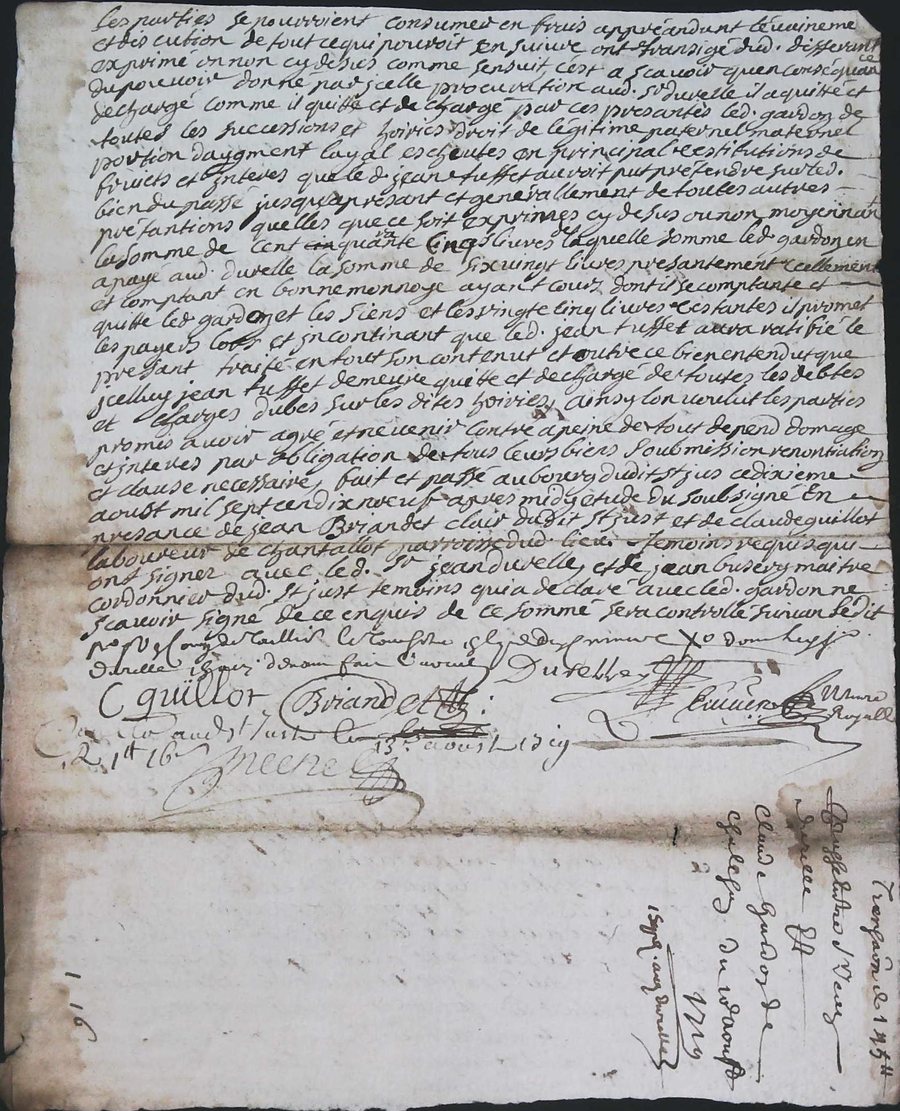 les parties se pourroient consumer en frais appreandant levaineme
et discution de tout ce qui pouvoit en suivre ont transigé dud. differant
exprime ou non cy desus comme sensuit, cest a scavoir quen conséquance
du pouvoir donné par jcelle procuration aud. Sr durelle il a quitté et
dechargé comme il quitte et decharge par ces presantes led. gardon de
toutes les sucessions et hoiries droit de légitime paternel maternel
portion daugment layal escheutes en principal restitutions de
fruicts et jnteres que led. jean tuffet auroit put prétendre sur led.
bien du passé jusqu'apresant et generallement de toutes autres
prétantions quelles que ce soit exprimés cy desus ou non moyennan
la somme de cent quarante cinq livres de laquelle somme led. gardon en
a payé aud. durelle la somme de six vingt livres presantement reellement
et comptant en bonne monnoye ayant cours dont il se comptante et
quitte led. gardon et les siens et les vingte cinq livres restantes il promet
les payers lors et jncontinant que led. jean tuffet aura ratifié le
presant traité en tout son contenut et outre ce bien entendut que
jcelluy jean tuffet demeure quitte et dechargé de toutes les debtes
et charges dubes sur les dites hoiries, ainsy lon voulut les parties
promis avoir agré et ne venir contre a peine de tout depend domage
et jnteres par obligation de tous leurs biens soubmission renontiation
et clause necessaire, fait et passé au bourg dudit St jus ce dixieme
aoust mil sept cen dix neuf apres midy etude du soubsigné en
presance de jean Briandet clair dudit St just et de claude quillot
laboureur de chantallot parroisse dud. lieu temoins requis qui
ont signer avec led. Sr jean durelle, et de jean busery maitre
cordonnier dud. St just temoins qui a declaré avec led. gardon ne
scavoir signé de ce enquis de ce sommé sera controllé suivan ledit
durelle
Durelle
Cquillot Briandet
Royalle
aud St Just le 13e aoust 1719
R 1tt 16s
Transaon de 145tt
durelle Et
Claude Gardon de
du 10 aoust
1719
1 16